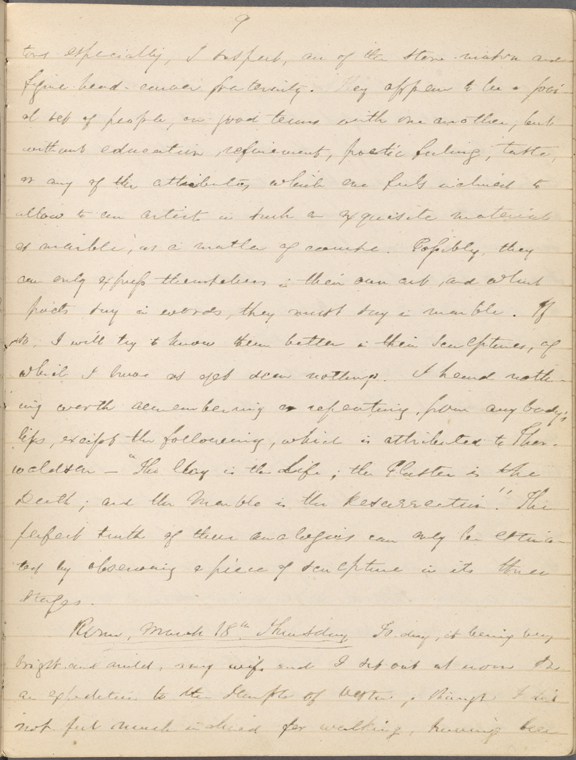 9
tors especially, I suspect, are of the stone-mason and
figure head-carver fraternity. They appear to be a good
set of people, on good terms with one another, but
without education, refinement, poetic feeling, taste,
or any of the attributes which one feels inclined to
allow to an artist in such an exquisite material
as marble, as a matter of course. Possibly, they
can only express themselves in their own art, and what
poets say in words, they must say in marble. If
so, I will try to know them better in their sculptures, of
which I have as yet seen nothing. I heard noth-
ing worth remembering or repeating, from anybody's
lips, except the following, which is attributed to Thor-
waldsen — "The Clay is the Life; the Plaster is the
Death; and the Marble is the Resurrection"! The
perfect truth of these analogies can only be estima-
ted by observing a piece of sculpture in its three
stages.
Rome, March 18th Thursday To-day, it being very
bright and mild, my wife and I set out at noon
an expedition to the Temple of Vesta, though I did
not feel much inclined for walking, having been